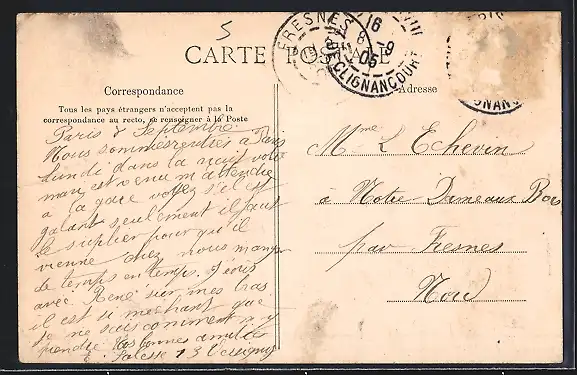 5
CARTE POSTALE
FRESNES
16
8 -9
05
CLIGNANCOURT
GNANC
Correspondance
Adresse
Tous les pays étrangers n'acceptent pas la
correspondance au recto, se renseigner à la Poste
Paris 8 Septembre
Nous sommes rentrés a Paris
lundi dans la nuit votre
mari est venu m'attendre
a la gare voyez s'il est
galant seulement il faut
le suplier pour qu'il
vienne chez nous manger
de temps en temps. J'ecris
avec René sur mes bras
il est si mechant que
je ne sais comment m'y
prendre Vos bonnes amitiés
Mme L Echevin
à Notre Dame aux Bois
par Fresnes
Nord